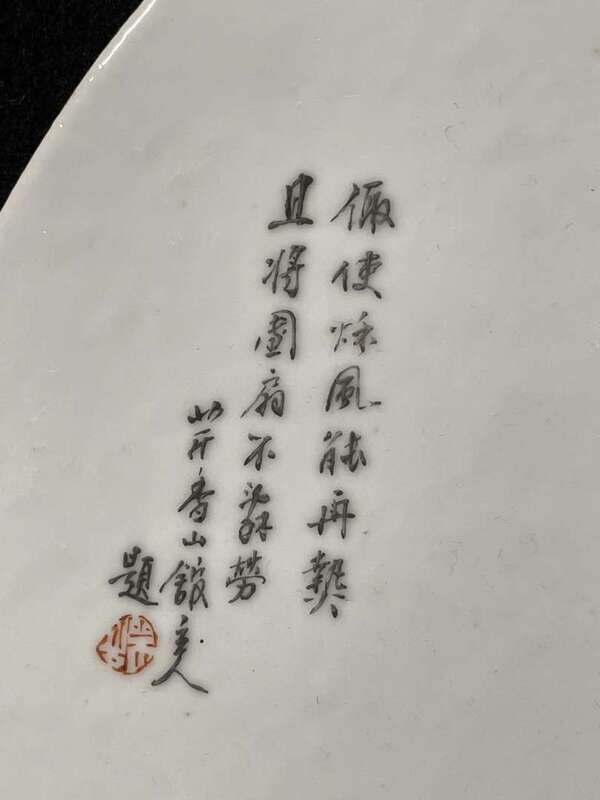 假使秌風能再熱
且將團扇不辭勞
香山館主人
題